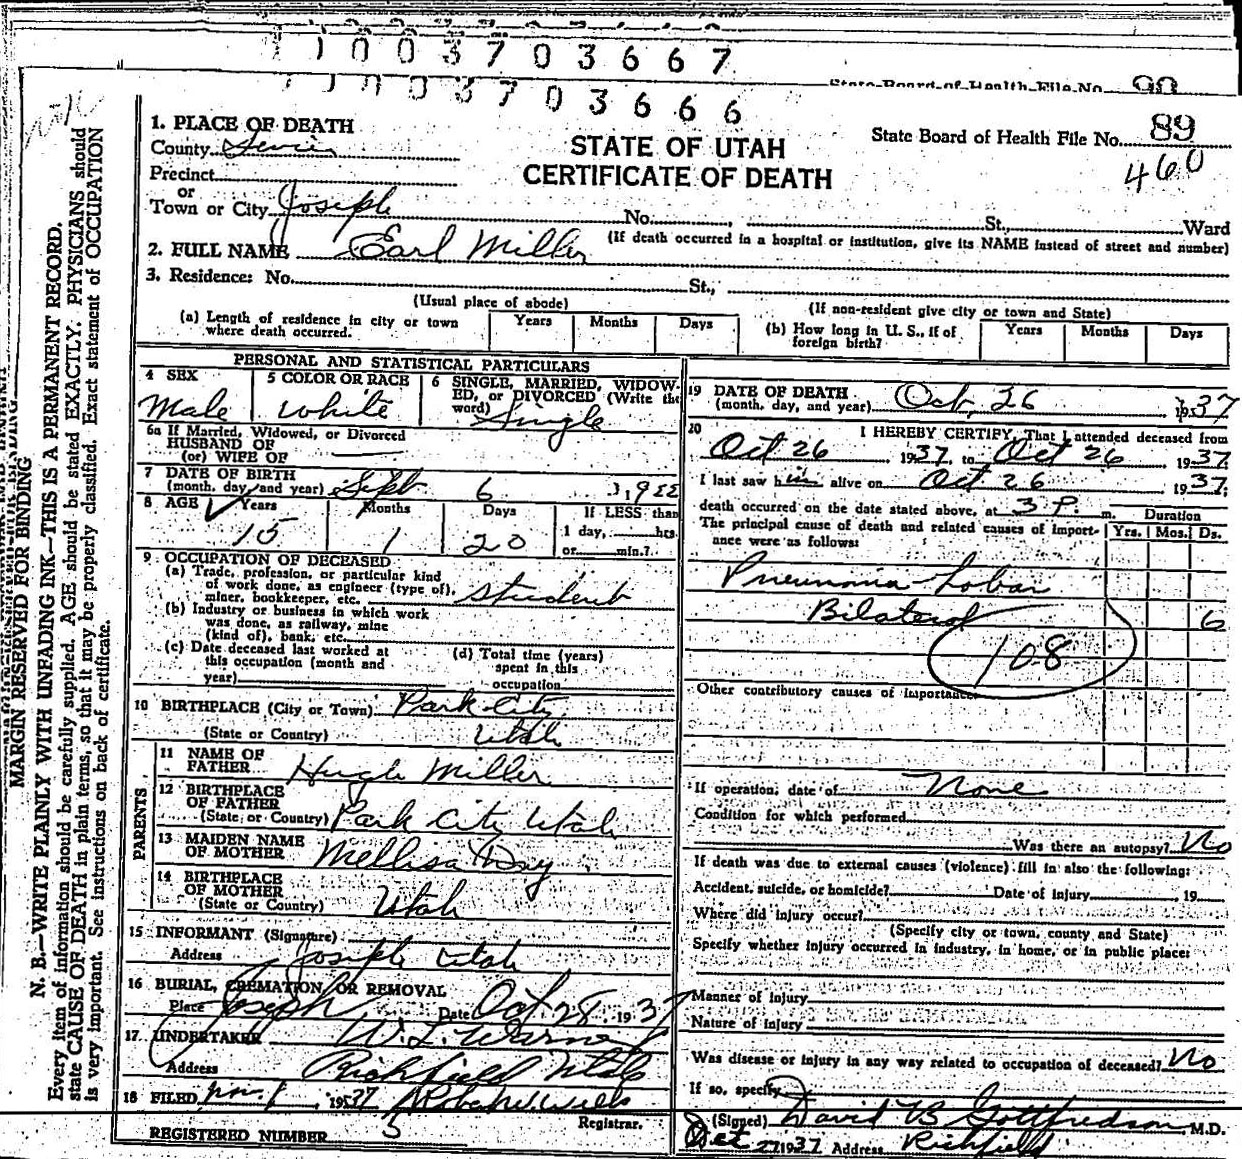 1003703667
State Board of Health File No. 90
1003703666
1. PLACE OF DEATH
County Sevier
Precinct
or
Town or City Joseph No. , St., Ward
STATE OF UTAH
CERTIFICATE OF DEATH
State Board of Health File No. 89
460
(If death occurred in a hospital or institution, give its NAME instead of street and number)
2. FULL NAME Earl Miller
3. Residence: No. St.,
(Usual place of abode) (If non-resident give city or town and State)
(a) Length of residence in city or town where death occurred. Years Months Days
(b) How long in U. S., if of foreign birth? Years Months Days
PERSONAL AND STATISTICAL PARTICULARS
4 SEX Male
5 COLOR OR RACE White
6 SINGLE, MARRIED, WIDOWED, or DIVORCED (Write the word) Single
6a If Married, Widowed, or Divorced
HUSBAND OF
(or) WIFE OF
7 DATE OF BIRTH
(month, day, and year) Sept 6, 1922
8 AGE Years Months Days If LESS than
15 1 20 1 day, hrs.
or min.?
9 OCCUPATION OF DECEASED
(a) Trade, profession, or particular kind
of work done, as engineer (type of),
miner, bookkeeper, etc. Student
(b) Industry or business in which work
was done, as railway, mine
(kind of), bank, etc.
(c) Date deceased last worked at
this occupation (month and
year)
(d) Total time (years)
spent in this
occupation
10 BIRTHPLACE (City or Town) Park City
(State or Country) Utah
PARENTS
11 NAME OF
FATHER Hugh Miller
12 BIRTHPLACE
OF FATHER
(State or Country) Park City Utah
13 MAIDEN NAME
OF MOTHER Mellisa
14 BIRTHPLACE
OF MOTHER
(State or Country) Utah
15 INFORMANT (Signature)
Address Joseph Utah
16 BURIAL, CREMATION, OR REMOVAL
Place Joseph Date Oct. 28, 1937
17 UNDERTAKER W. L. Warner
Address Richfield Utah
18 FILED Nov. 1, 1937
Registrar.
REGISTERED NUMBER 5
19 DATE OF DEATH
(month, day, and year) Oct, 26 1937
20 I HEREBY CERTIFY, That I attended deceased from
Oct 26 1937, to Oct 26 1937.
I last saw him alive on Oct 26 1937;
death occurred on the date stated above, at 3 P. m.
The principal cause of death and related causes of importance were as follows:
Duration
Yrs. Mos. Ds.
Pneumonia Lobar
Bilateral 6
108
Other contributory causes of importance
If operation, date of None
Condition for which performed
Was there an autopsy? No
If death was due to external causes (violence) fill in also the following:
Accident, suicide, or homicide? Date of injury , 19
Where did injury occur?
(Specify city or town, county and State)
Specify whether injury occurred in industry, in home, or in public place:
Manner of Injury
Nature of Injury
Was disease or injury in any way related to occupation of deceased? No
If so, specify
(Signed) David B Gottfredson, M.D.
Oct 27 1937 Address Richfield
MARGIN RESERVED FOR BINDING
N. B.—WRITE PLAINLY WITH UNFADING INK—THIS IS A PERMANENT RECORD.
Every item of information should be carefully supplied. AGE should be stated EXACTLY. PHYSICIANS should
state CAUSE OF DEATH in plain terms, so that it may be properly classified. Exact statement of OCCUPATION
is very important. See instructions on back of certificate.